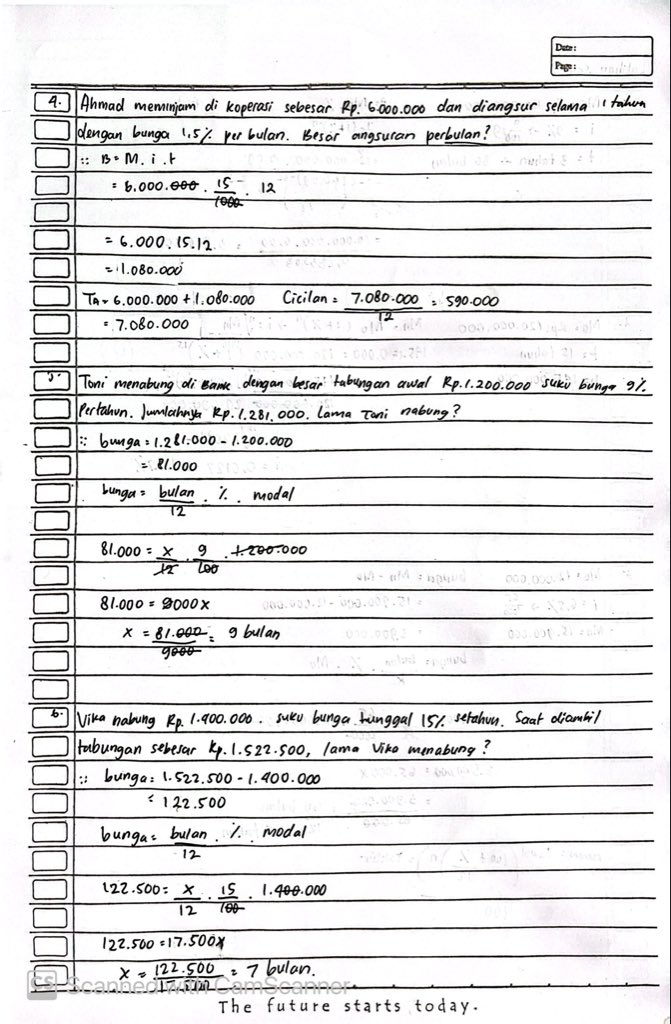 Date:
Page:
4. Ahmad meminjam di koperasi sebesar Rp. 6.000.000 dan diangsur selama 1 tahun
dengan bunga 1.5% per bulan. Besar angsuran perbulan?
:: B = M. i. t
= 6.000.000 . 15/1000 . 12
= 6.000.15.12
= 1.080.000
Ta = 6.000.000 + 1.080.000 Cicilan = 7.080.000/12 = 590.000
= 7.080.000
5. Toni menabung di Bank dengan besar tabungan awal Rp.1.200.000 suku bunga 9%
Pertahun. Jumlahnya Rp.1.281.000. Lama Toni nabung?
:: bunga = 1.281.000 - 1.200.000
= 81.000
bunga = bulan/12 . % . modal
81.000 = x/12 . 9/100 . 1.200.000
81.000 = 9000x
x = 81.000/9000 = 9 bulan
6. Vika nabung Rp. 1.400.000. suku bunga tunggal 15% setahun. Saat diambil
tabungan sebesar Rp.1.522.500, lama Vika menabung?
:: bunga = 1.522.500 - 1.400.000
= 122.500
bunga = bulan/12 . % . modal
122.500 = x/12 . 15/100 . 1.400.000
122.500 = 17.500x
x = 122.500/17.500 = 7 bulan.
CS Scanned with CamScanner
The future starts today.